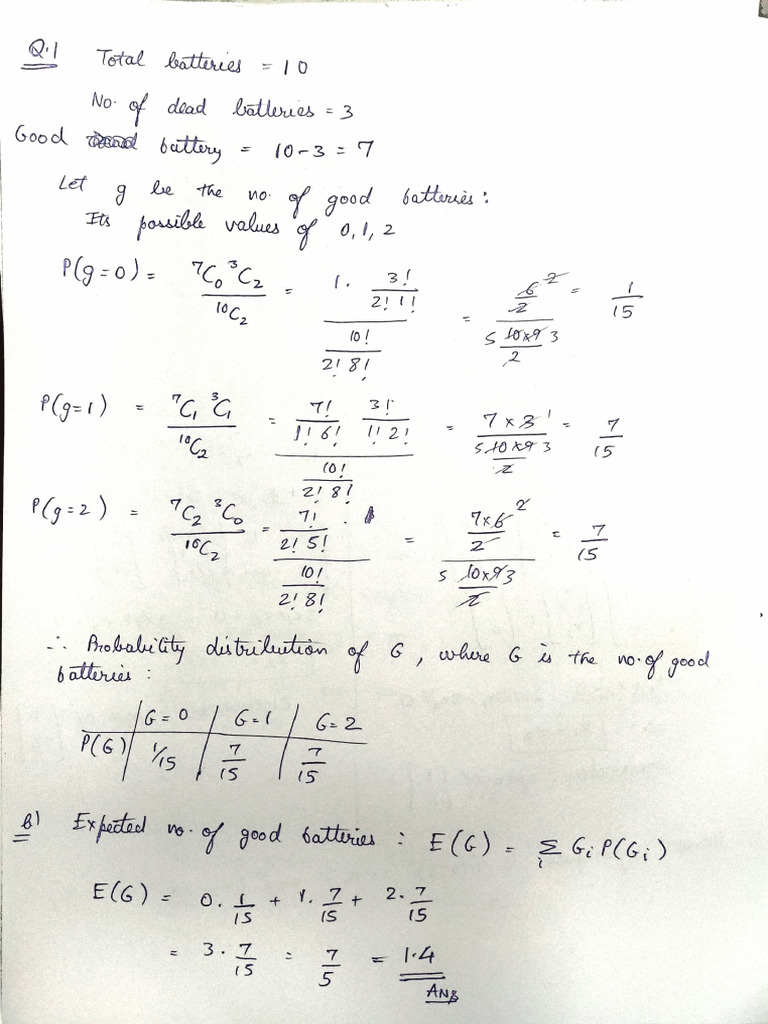 Q.1 Total batteries = 10
No. of dead batteries = 3
Good battery = 10-3 = 7
Let g be the no. of good batteries:
Its possible values of 0, 1, 2
P(g=0) = ⁷C₀ ³C₂ / ¹⁰C₂ = (1. 3!/(2! 1!)) / (10!/(2! 8!)) = (6/2) / (10×9/2) = 1/15
P(g=1) = ⁷C₁ ³C₁ / ¹⁰C₂ = (7!/(1! 6!) 3!/(1! 2!)) / (10!/(2! 8!)) = 7×3 / (10×9/2) = 7/15
P(g=2) = ⁷C₂ ³C₀ / ¹⁰C₂ = (7!/(2! 5!) . 1) / (10!/(2! 8!)) = (7×6/2) / (10×9/2) = 7/15
∴ Probability distribution of G, where G is the no. of good
batteries:
G=0 G=1 G=2
P(G) 1/15 7/15 7/15
B) Expected no. of good batteries : E(G) = Σᵢ Gᵢ P(Gᵢ)
E(G) = 0. 1/15 + 1. 7/15 + 2. 7/15
= 3. 7/15 = 7/5 = 1.4
Ans